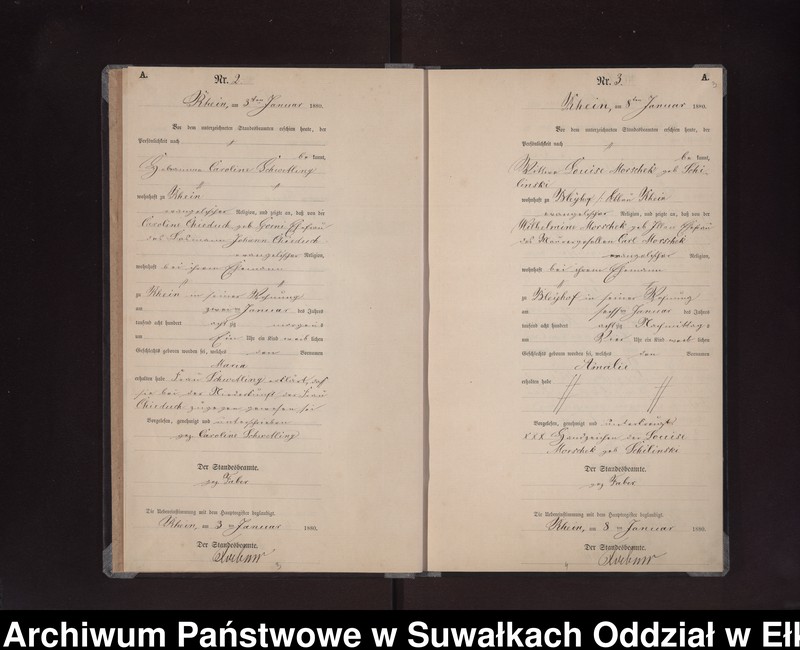 A.
Nr. 2
Rhein, am 3ten Januar 1880.
Vor dem unterzeichneten Standesbeamten erschien heute, der
Persönlichkeit nach
be kannt,
Hebamme Caroline Schwelling
wohnhaft zu Rhein
evangelischer Religion, und zeigte an, daß von der
Caroline Chiedsch geb. Ehefrau
des Johann Chiedsch
evangelischer Religion,
wohnhaft bei ihrem Ehemann
zu Rhein in seiner Wohnung
am zweiten Januar des Jahres
tausend acht hundert achtzig morgens
um Ein Uhr ein Kind weib lichen
Geschlechts geboren worden sei, welches den Vornamen
Maria
erhalten habe Frau Schwelling erklärt, daß
sie bei der Niederkunft der Frau
Chiedsch zugegen gewesen sei
Vorgelesen, genehmigt und unterschrieben
gez. Caroline Schwelling
Der Standesbeamte.
gez. Faber
Die Uebereinstimmung mit dem Hauptregister beglaubigt.
Rhein, am 3 ten Januar 1880.
Der Standesbeamte.
A.
Nr. 3.
Rhein, am 8ten Januar 1880.
Vor dem unterzeichneten Standesbeamten erschien heute, der
Persönlichkeit nach
be kannt,
Wittwe Louise Morschek geb. Schi-
linski
wohnhaft zu Rhein
evangelischer Religion, und zeigte an, daß von der
Wilhelmine Morschek geb. Ehefrau
des Maurergesellen Carl Morschek
evangelischer Religion,
wohnhaft bei ihrem Ehemann
zu Bleyhof in seiner Wohnung
am Januar des Jahres
tausend acht hundert achtzig Nachmittags
um Vier Uhr ein Kind weib lichen
Geschlechts geboren worden sei, welches den Vornamen
Amalie
erhalten habe
Vorgelesen, genehmigt und unterkreuzt
XXX Handzeichen der Louise
Morschek geb. Schilinski
Der Standesbeamte.
gez. Faber
Die Uebereinstimmung mit dem Hauptregister beglaubigt.
Rhein, am 8 ten Januar 1880.
Der Standesbeamte.
Archiwum Państwowe w Suwałkach Oddział w Ełk